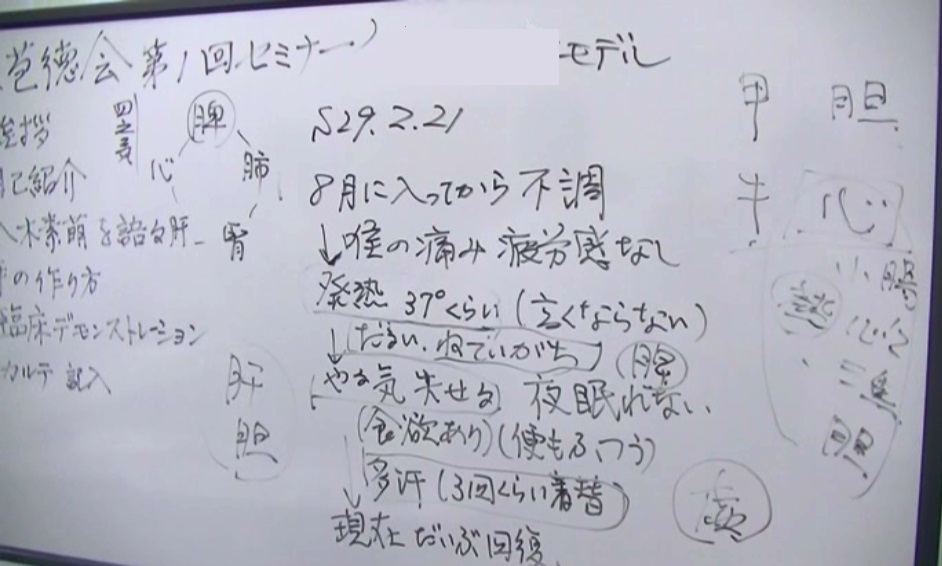 道徳会 第1回セミナー
モデル
挨拶
自己紹介
八木素萌を語る 肝
の作り方
臨床デモンストレーション
カルテ記入
脾
心
肺
腎
肝
胆
S29.2.21
8月に入ってから不調
↓喉の痛み 疲労感なし
発熱 37°くらい (高くならない)
↓だるい、ねていがち
(やる気失せる) 夜眠れない
(食欲あり) (便もふつう)
↓多汗 (3回くらい着替)
現在 だいぶ回復
甲 胆
心
小腸
心包
三焦
胆